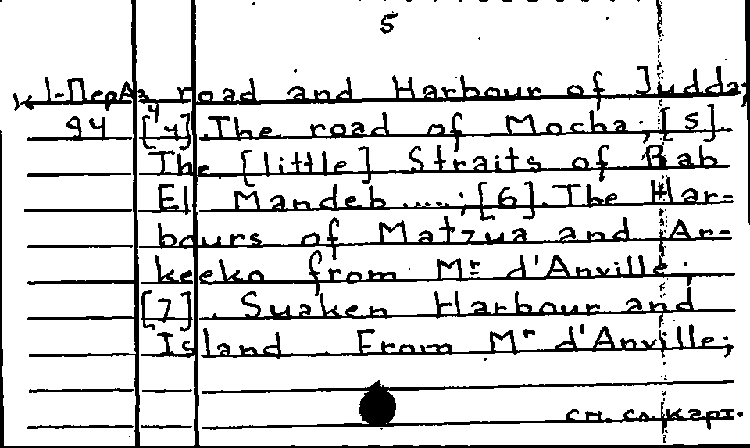 5
К 1-ПерАз road and Harbour of Judda;
94 [4]. The road of Mocha; [5].
The [little] Straits of Bab
El Mandeb ....; [6]. The Har=
bours of Matzua and Ar=
keeko from Mr d'Anville;
[7]. Suaken Harbour and
Island. From Mr d'Anville;
см. сл. карт.